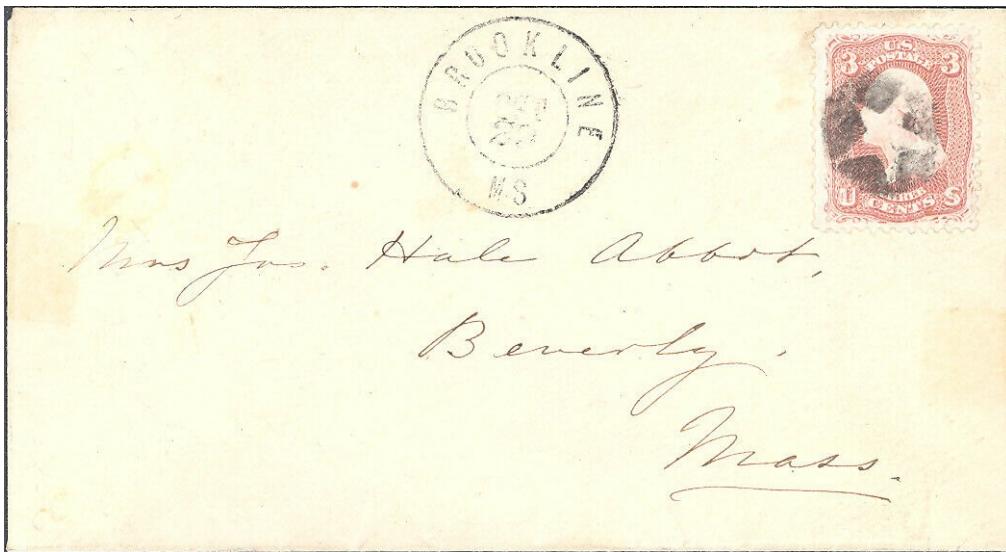 BROOKLINE
22
MS
U.S.
POSTAGE
3 3
U CENTS S
Mrs Jos. Hale Abbot,
Beverly.
Mass.